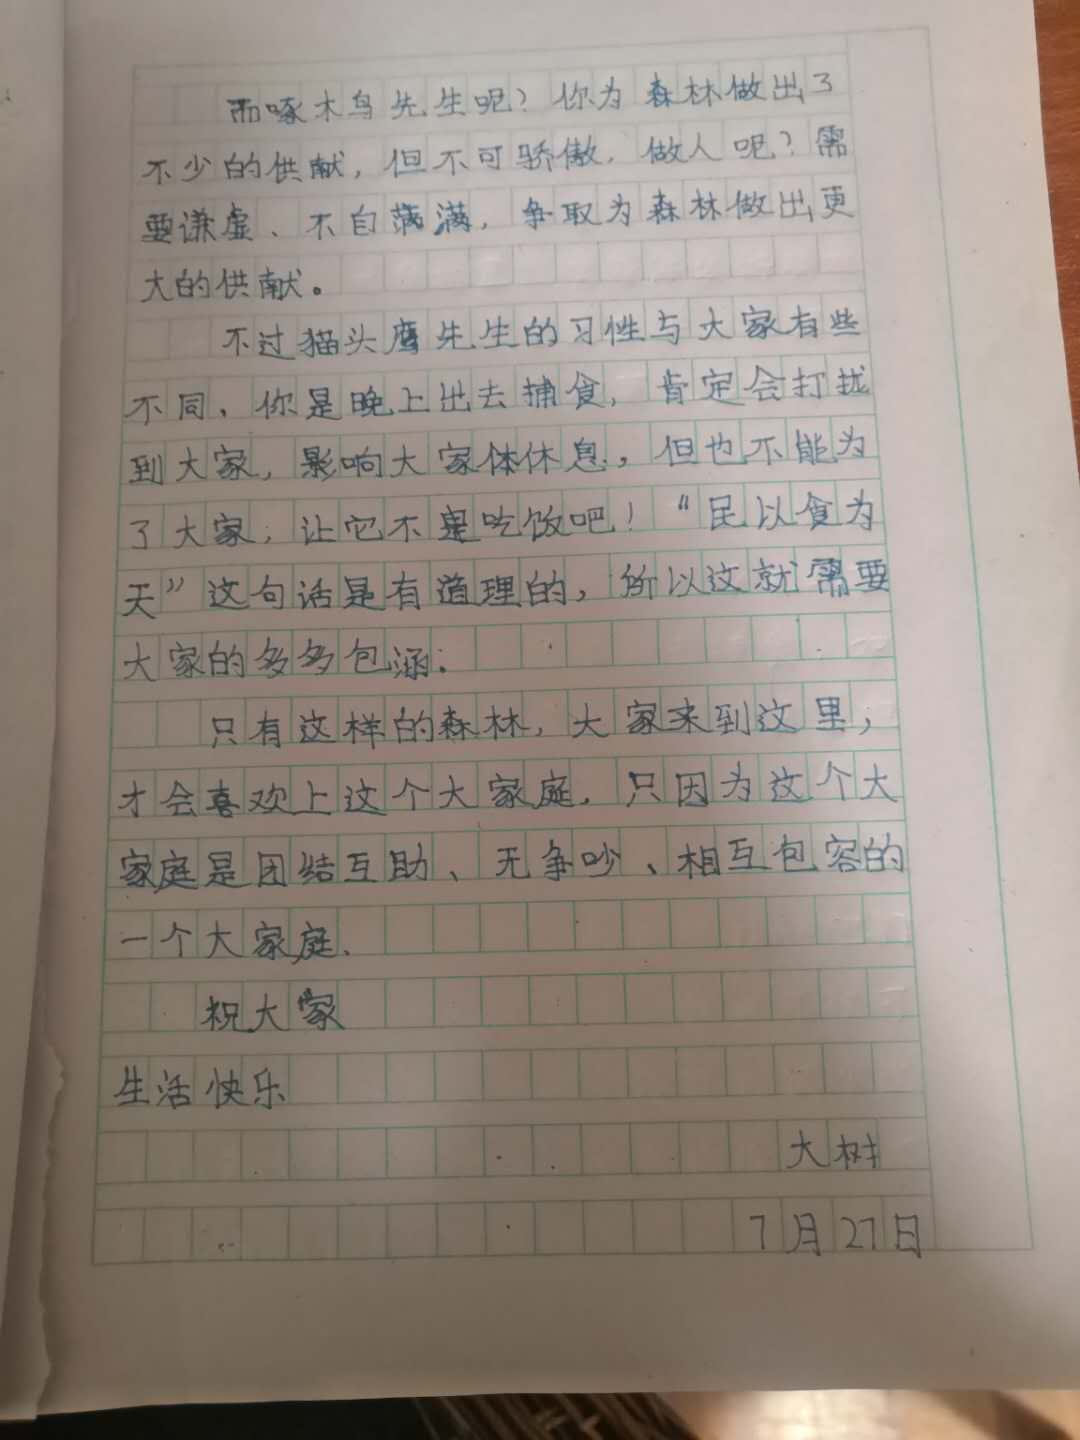 而啄木鸟先生呢？你为森林做出了
不少的供献，但不可骄傲，做人呢？需
要谦虚、不自满满，争取为森林做出更
大的供献。
不过猫头鹰先生的习性与大家有些
不同，你是晚上出去捕食，肯定会打扰
到大家，影响大家体休息，但也不能为
了大家，让它不是吃饭吧！“民以食为
天”这句话是有道理的，所以这就需要
大家的多多包涵.
只有这样的森林，大家来到这里，
才会喜欢上这个大家庭，只因为这个大
家庭是团结互助、无争吵、相互包容的
一个大家庭.
祝大家
生活快乐
大树
7月27日